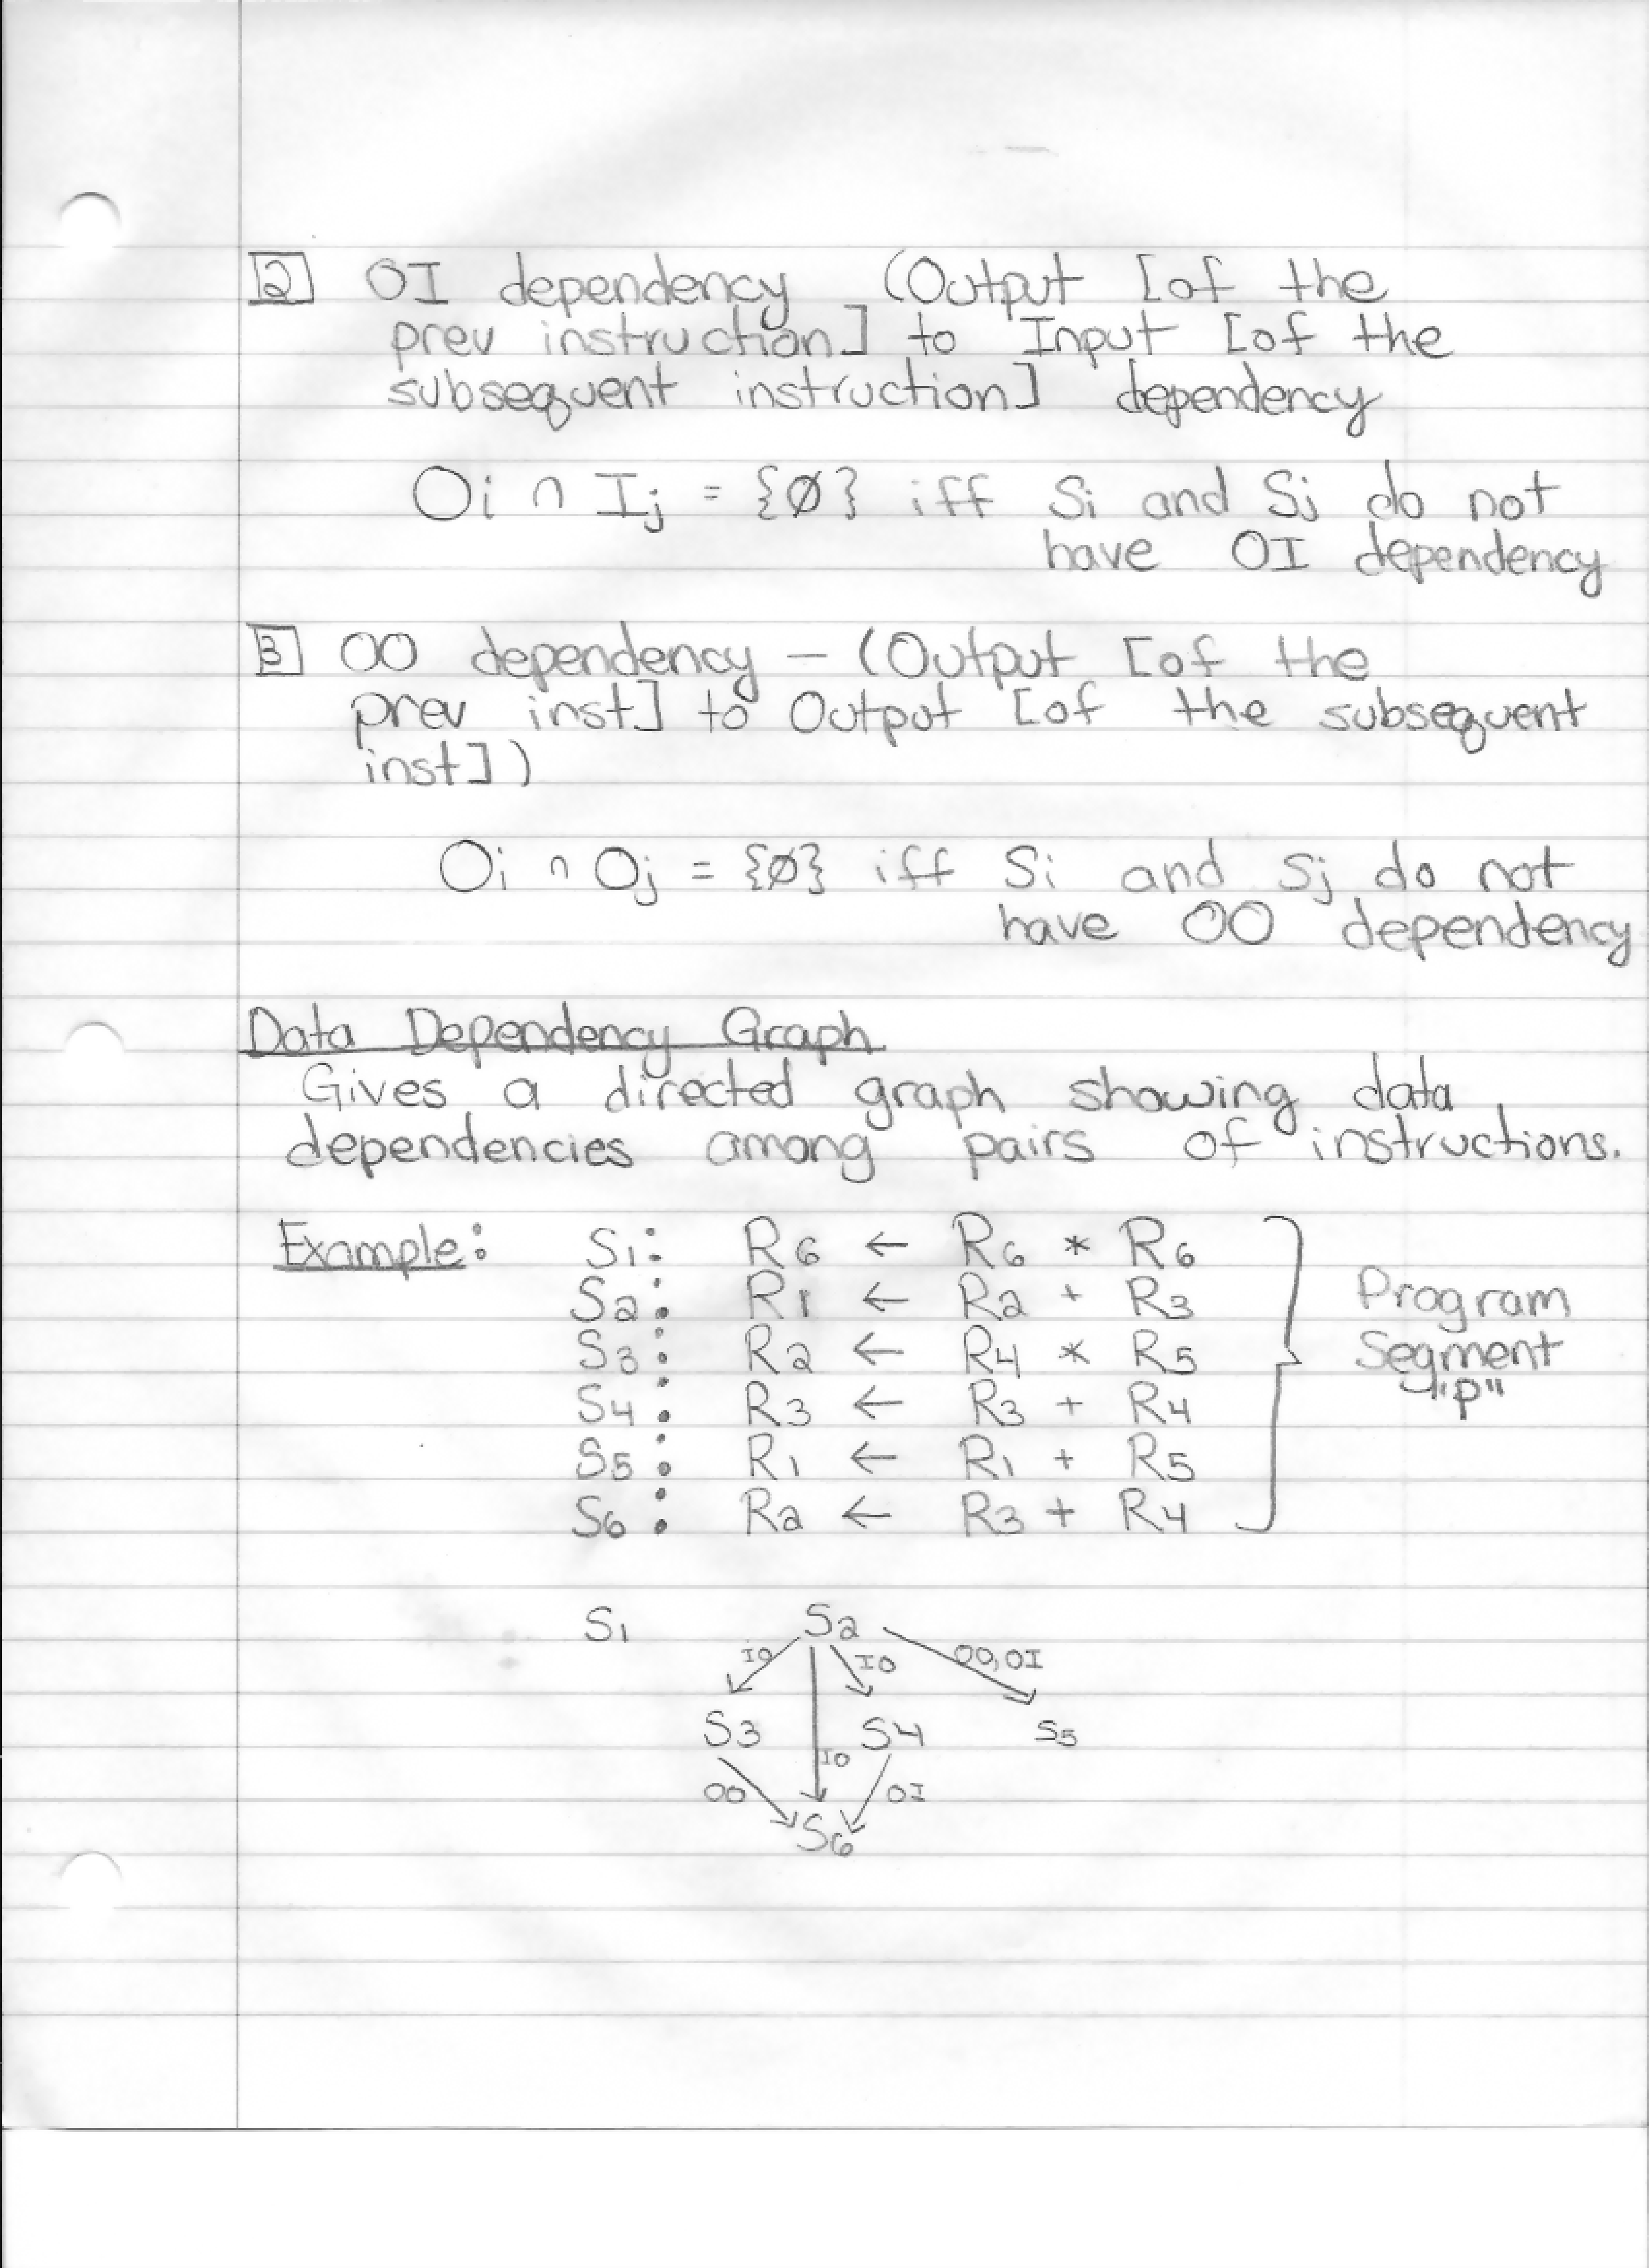 2 OI dependency (Output [of the
prev instruction] to Input [of the
subsequent instruction] dependency
Oi ∩ Ij = {∅} iff Si and Sj do not
have OI dependency
3 OO dependency – (Output [of the
prev inst] to Output [of the subsequent
inst])
Oi ∩ Oj = {∅} iff Si and Sj do not
have OO dependency
Data Dependency Graph
Gives a directed graph showing data
dependencies among pairs of instructions.
Example: S1: R6 ← R6 * R6
S2: R1 ← R2 + R3 Program
S3: R2 ← R4 * R5 Segment
S4: R3 ← R3 + R4 "P"
S5: R1 ← R1 + R5
S6: R2 ← R3 + R4
S1 S2
IO IO OO,OI
S3 S4 S5
IO
OO OI
S6